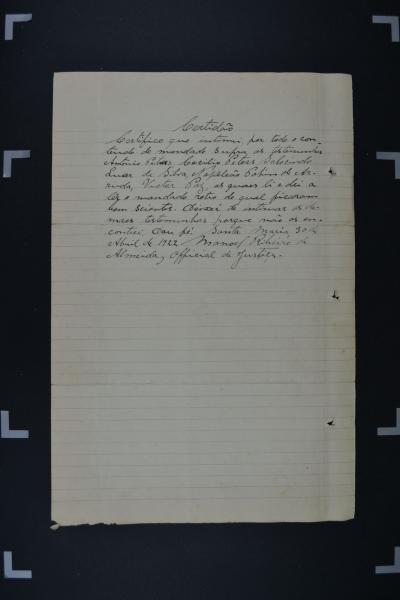 Certidão
Certifico que intimei, por todo o con-
teudo do mandado supra as testemunhas
Antonio Peters Peters
da Silva, Napoleão de Ar-
ruda, Victor Paz, as quaes li e dei a
ler o mandado retro do qual ficaram
bem scientes. Deixei de intimar as de-
mais testemunhas porque não as en-
contrei. Dou fé. Santa Maria, 30 de
Abril de 1922. Manoel Ribeiro de
Almeida, Official de Justiça.